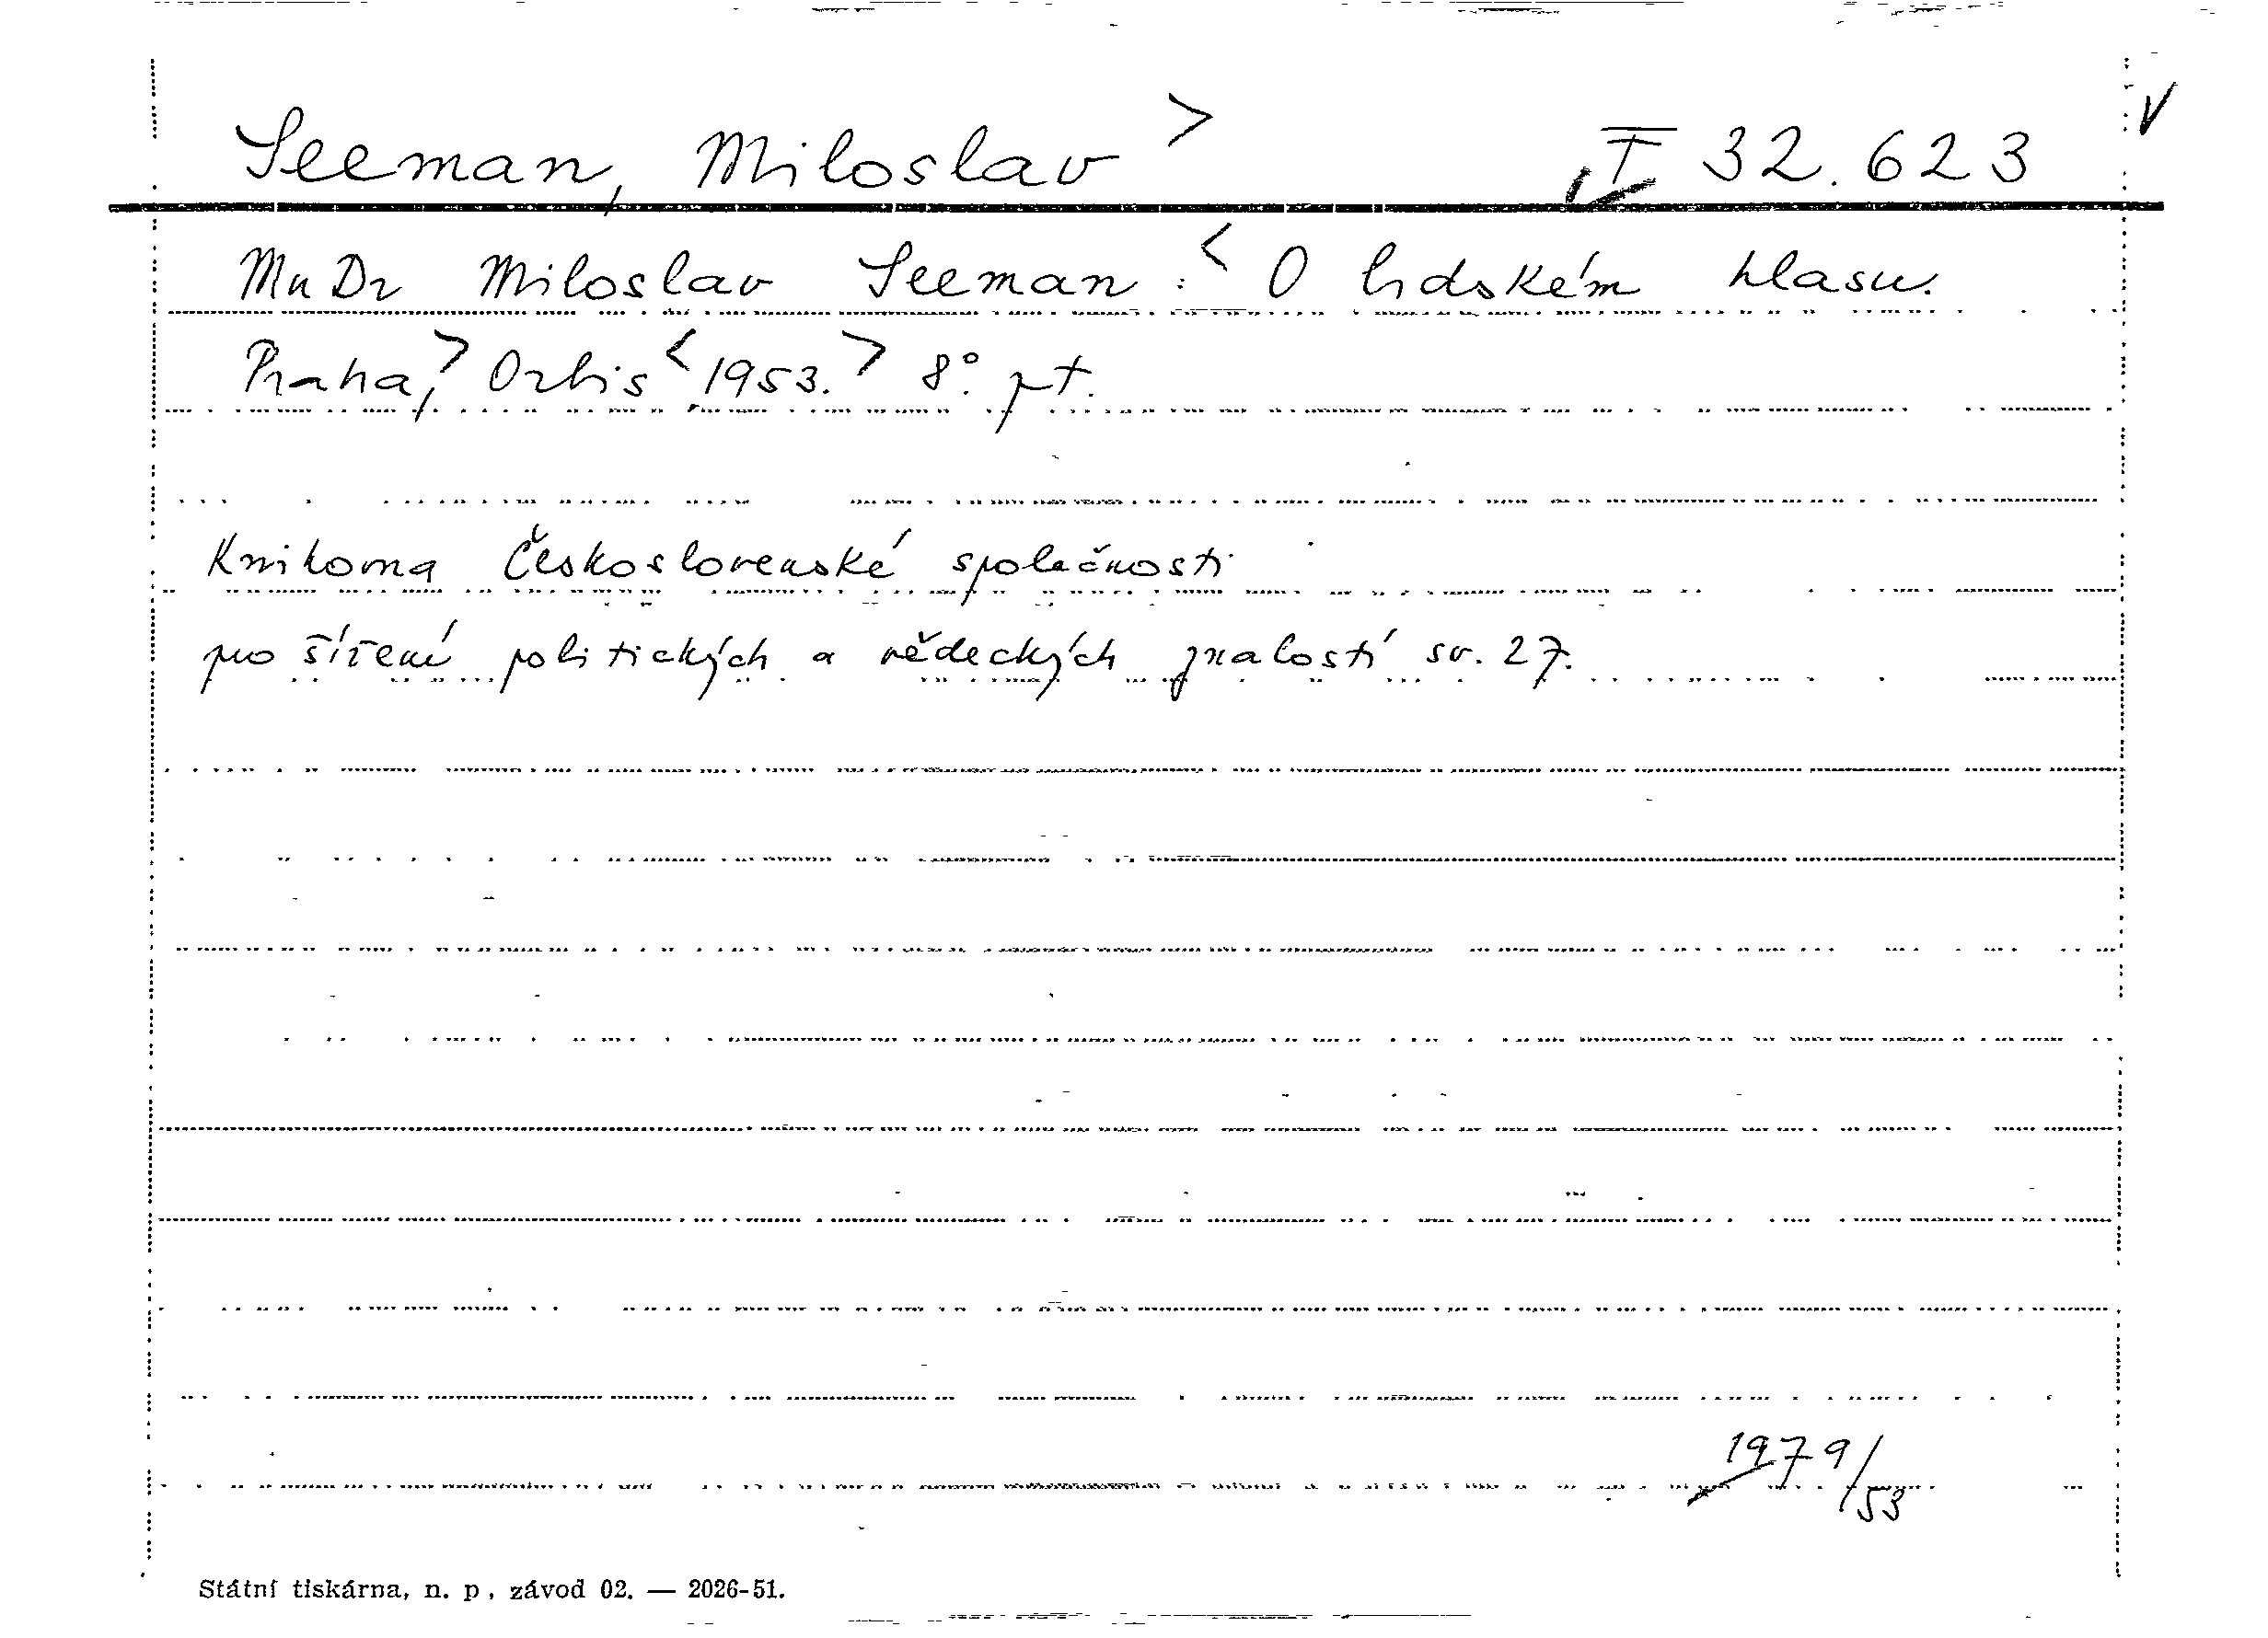 Seeman, Miloslav > I 32.623 V
MuDr Miloslav Seeman : < O lidském hlasu.
Praha, > Orbis < 1953. > 8°. pt.
Knihovna Československé společnosti
pro šíření politických a vědeckých znalostí sv. 27.
1979/53
Státní tiskárna, n. p., závod 02. — 2026-51.